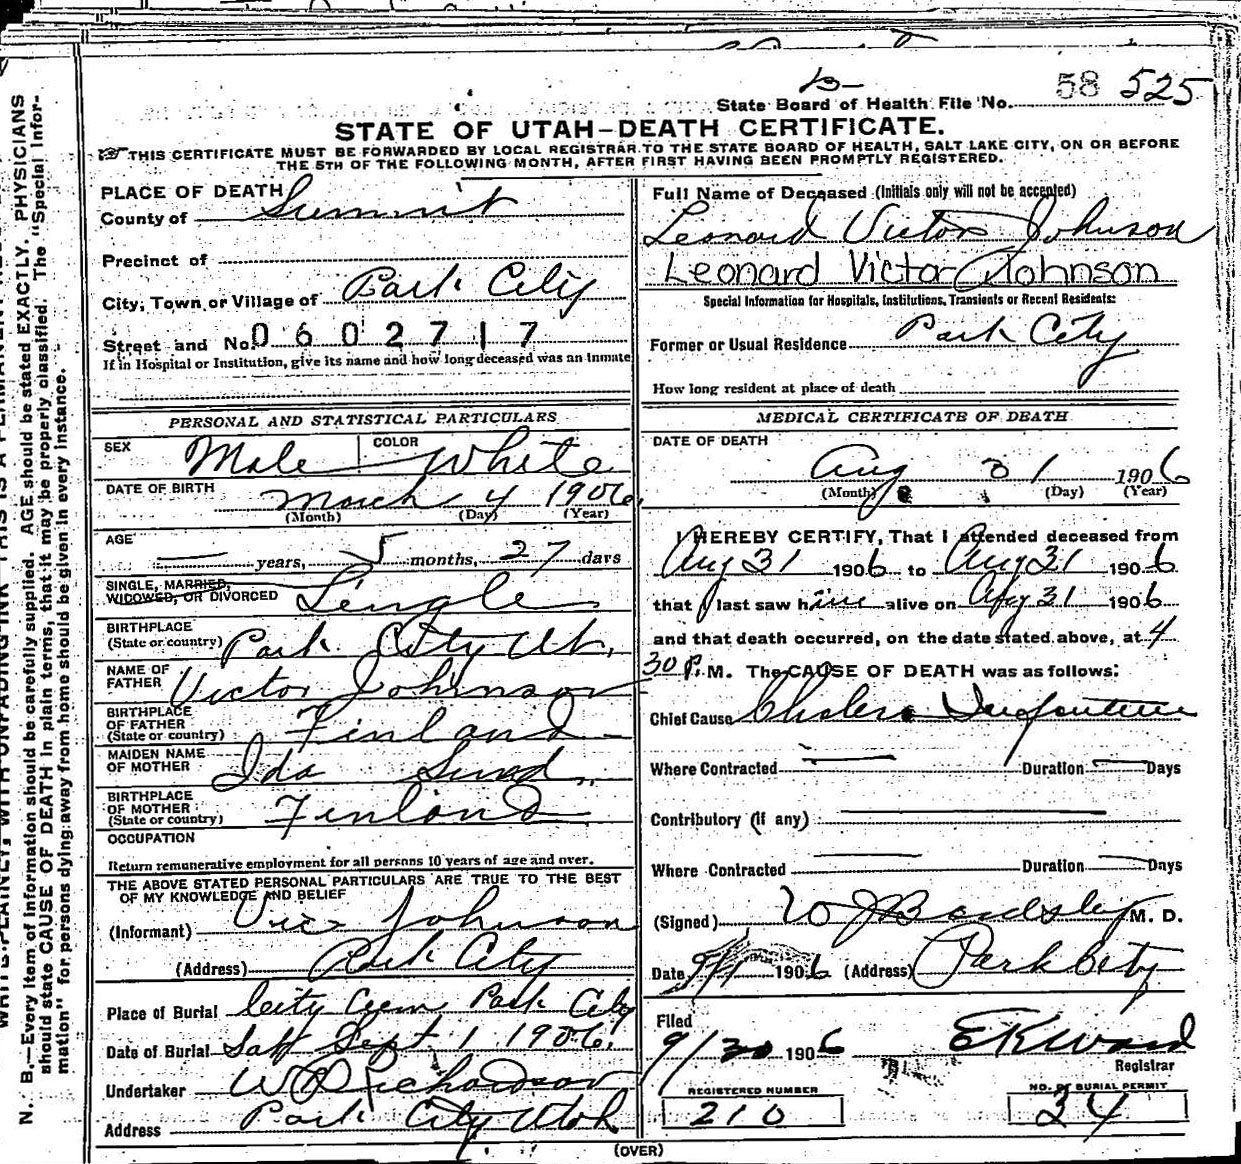 58 525
State Board of Health File No.
STATE OF UTAH-DEATH CERTIFICATE.
THIS CERTIFICATE MUST BE FORWARDED BY LOCAL REGISTRAR TO THE STATE BOARD OF HEALTH, SALT LAKE CITY, ON OR BEFORE
THE 5TH OF THE FOLLOWING MONTH, AFTER FIRST HAVING BEEN PROMPTLY REGISTERED.
PLACE OF DEATH
County of Summit
Precinct of
City, Town or Village of Park City
Street and No. 0602717
If in Hospital or Institution, give its name and how long deceased was an Inmate
PERSONAL AND STATISTICAL PARTICULARS
SEX Male COLOR White
DATE OF BIRTH March 4 1906
(Month) (Day) (Year)
AGE — years, 5 months, 27 days
SINGLE, MARRIED,
WIDOWED, OR DIVORCED Single
BIRTHPLACE
(State or country) Park City Ut.
NAME OF
FATHER Victor Johnson
BIRTHPLACE
OF FATHER
(State or country) Finland
MAIDEN NAME
OF MOTHER Ida Sund
BIRTHPLACE
OF MOTHER
(State or country) Finland
OCCUPATION
Return remunerative employment for all persons 10 years of age and over.
THE ABOVE STATED PERSONAL PARTICULARS ARE TRUE TO THE BEST
OF MY KNOWLEDGE AND BELIEF
(Informant) Vic Johnson
(Address) Park City
Place of Burial City Cem Park City
Date of Burial Sat Sept 1 1906.
Undertaker W Richardson
Address Park City Utah
Full Name of Deceased (Initials only will not be accepted)
Leonard Victor Johnson
Leonard Victor Johnson
Special Information for Hospitals, Institutions, Transients or Recent Residents:
Former or Usual Residence Park City
How long resident at place of death
MEDICAL CERTIFICATE OF DEATH
DATE OF DEATH
Aug 31 1906
(Month) (Day) (Year)
I HEREBY CERTIFY, That I attended deceased from
Aug 31 1906 to Aug 31 1906
that I last saw him alive on Aug 31 1906
and that death occurred, on the date stated above, at 4
30 P. M. The CAUSE OF DEATH was as follows:
Chief Cause Cholera Infantum
Where Contracted — Duration — Days
Contributory (if any) —
Where Contracted — Duration — Days
(Signed) W J Bardsley M. D.
Date 9/1 1906 (Address) Park City
Filed
9/30 1906 E K Ward
Registrar
REGISTERED NUMBER
210
NO. OF BURIAL PERMIT
34
(OVER)
N. B.—Every item of information should be carefully supplied. AGE should be stated EXACTLY. PHYSICIANS
should state CAUSE OF DEATH in plain terms, that it may be properly classified. The "Special Infor-
mation" for persons dying away from home should be given in every instance.